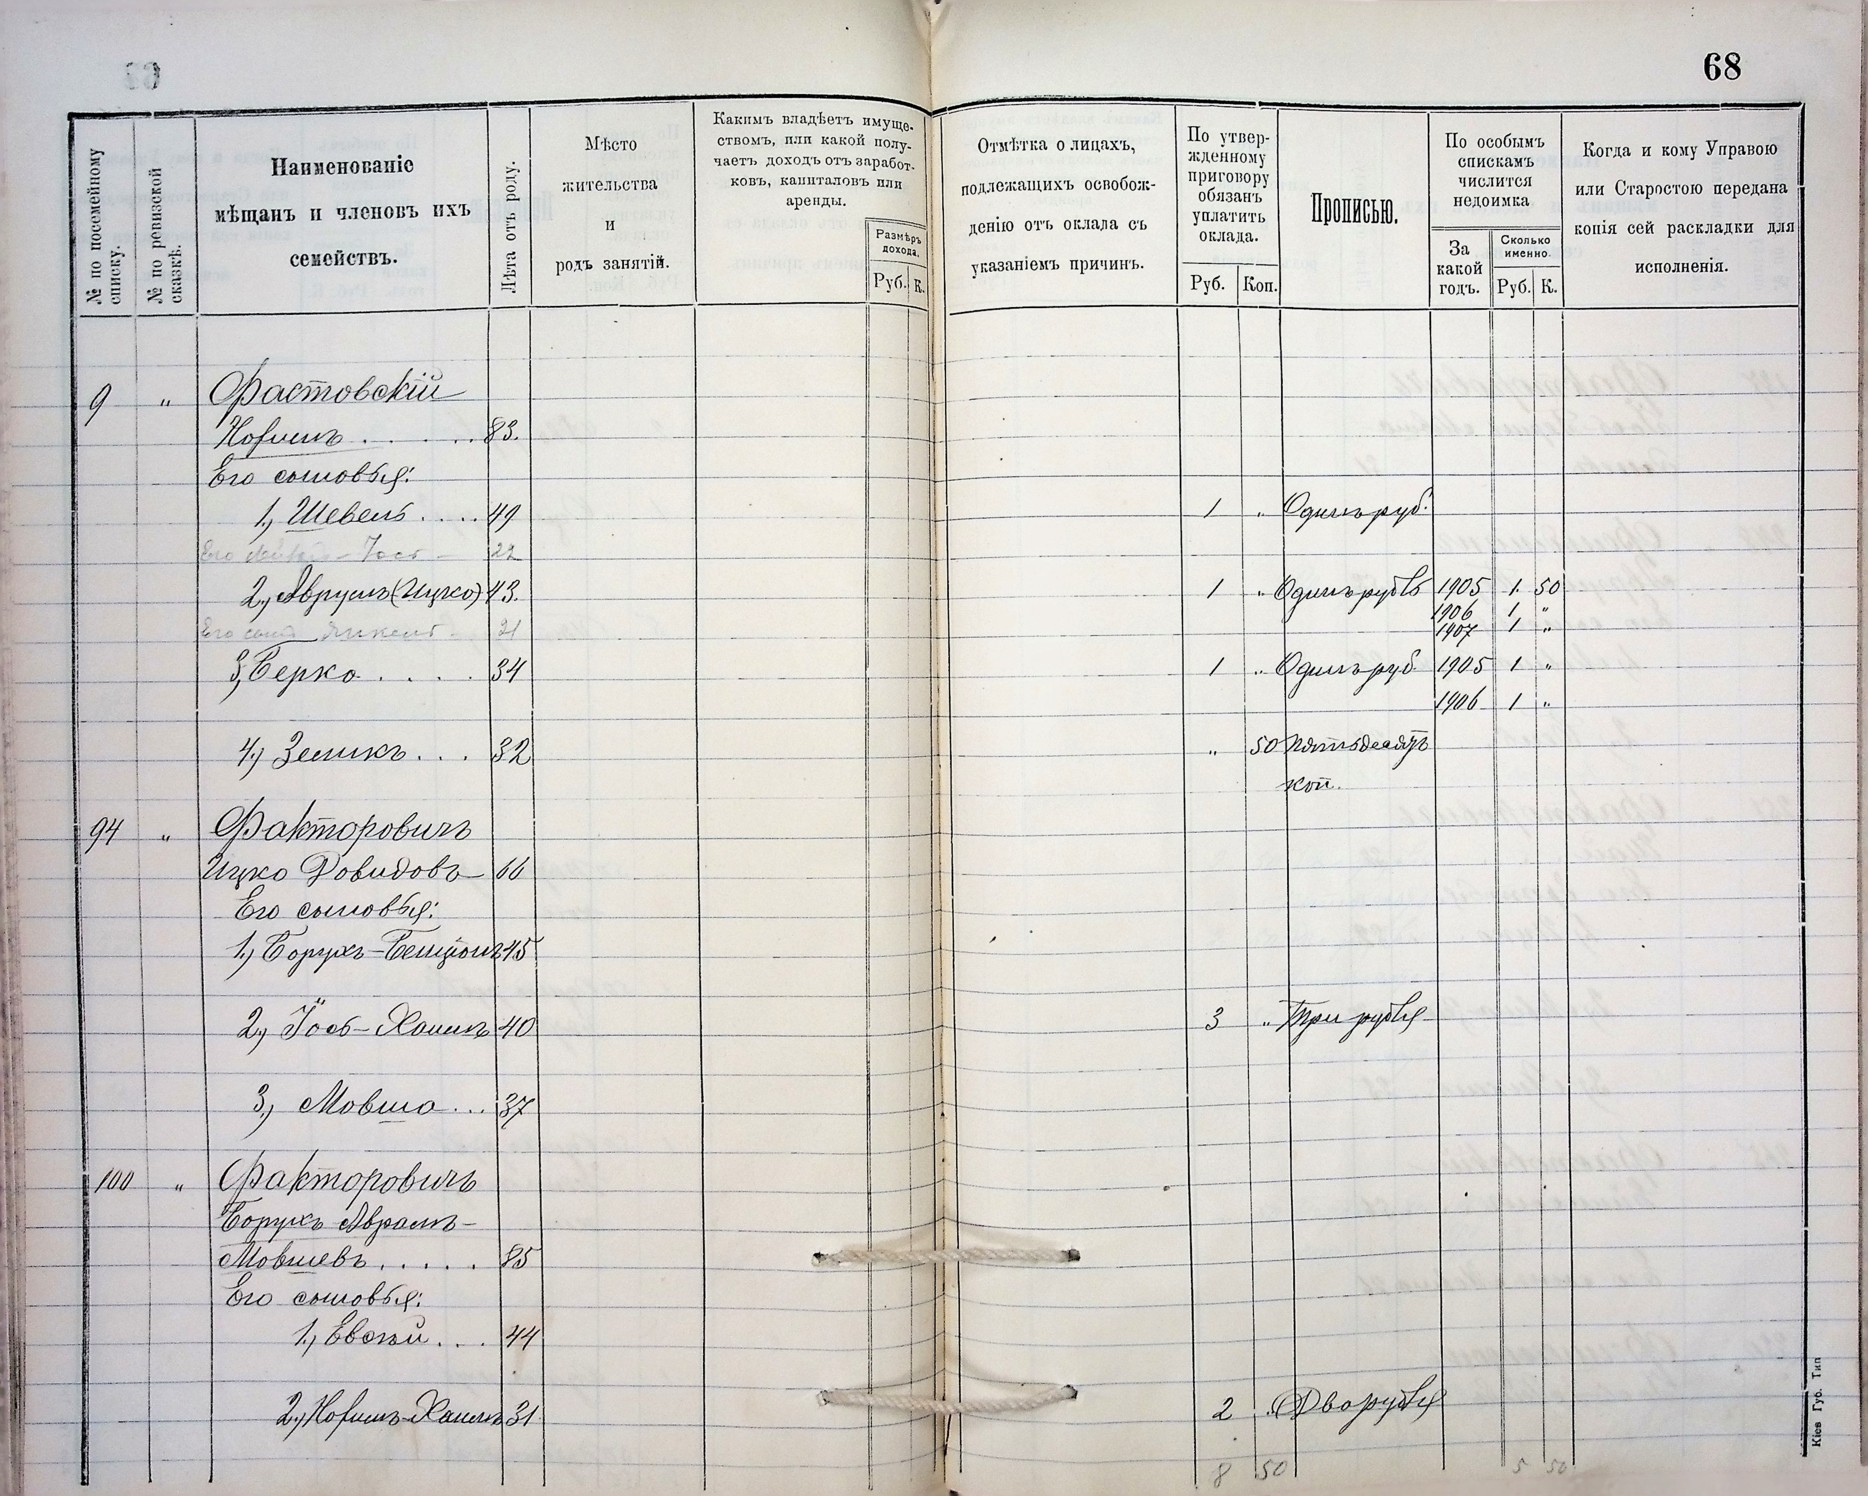 68
№ по посемейному списку.
№ по ревизской сказкѣ.
Наименованіе
мѣщанъ и членовъ ихъ
семействъ.
Лѣта отъ роду.
Мѣсто
жительства
и
родъ занятій.
Какимъ владѣетъ имуще-
ствомъ, или какой полу-
чаетъ доходъ отъ заработ-
ковъ, капиталовъ или
аренды.
Размѣръ
дохода.
Руб. К.
Отмѣтка о лицахъ,
подлежащихъ освобож-
денію отъ оклада съ
указаніемъ причинъ.
По утвер-
жденному
приговору
обязанъ
уплатить
оклада.
Руб. Коп.
Прописью.
По особымъ
спискамъ
числится
недоимка
За
какой
годъ.
Сколько
именно.
Руб. К.
Когда и кому Управою
или Старостою передана
копія сей раскладки для
исполненія.
9 " Фастовскій
Нохимъ . . . . . . 83.
Его сыновья:
1., Шевель . . . . 49 1 " Одинъ руб.
Его Іось 22
2., Аврумъ (Ицко) 43. 1 " Одинъ рубль 1905 1. 50
1906 1 "
Его сынъ Янкель 21 1907 1 "
3., Берко . . . . 34 1 " Одинъ руб. 1905 1 "
1906 1 "
4.) Зеликъ . . . 32 " 50 Пятьдесятъ
коп.
94 " Факторовичъ
Ицко Довидовъ 66
Его сыновья:
1.) Борухъ-Бенціонъ 45
2.) Іось-Хаимъ 40 3 " Три рубля
3., Мовша . . . 37
100 " Факторовичъ
Борухъ Аврамъ-
Мовшевъ . . . . . 85
Его сыновья:
1., Евсѣй . . . 44
2., Нохимъ-Хаимъ 31 2 " Два рубля
8 50 5 50
Кіев Губ. Тип